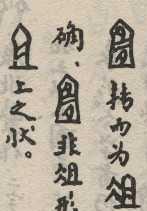 转而为俎
确、非俎形
上之状。